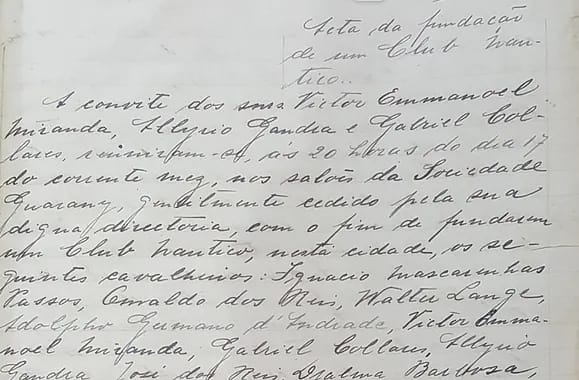 Acta da fundação
de um Club Nau-
tico..
A convite dos snrs. Victor Emmanoel
Miranda, Allyrio Gandra e Gabriel Col-
lares, reuniram-se, ás 20 horas do dia 17
do corrente mez, nos salões da Sociedade
Guarany, gentilmente cedido pela sua
digna directoria, com o fim de fundarem
um Club Nautico, nesta cidade, os se-
guintes cavalheiros: Ignacio Mascarenhas
Passos, Oswaldo dos Reis, Walter Lange,
Adolpho Germano d'Andrade, Victor Emma-
noel Miranda, Gabriel Collares, Allyrio
Gandra José dos Reis, Djalma Barbosa,